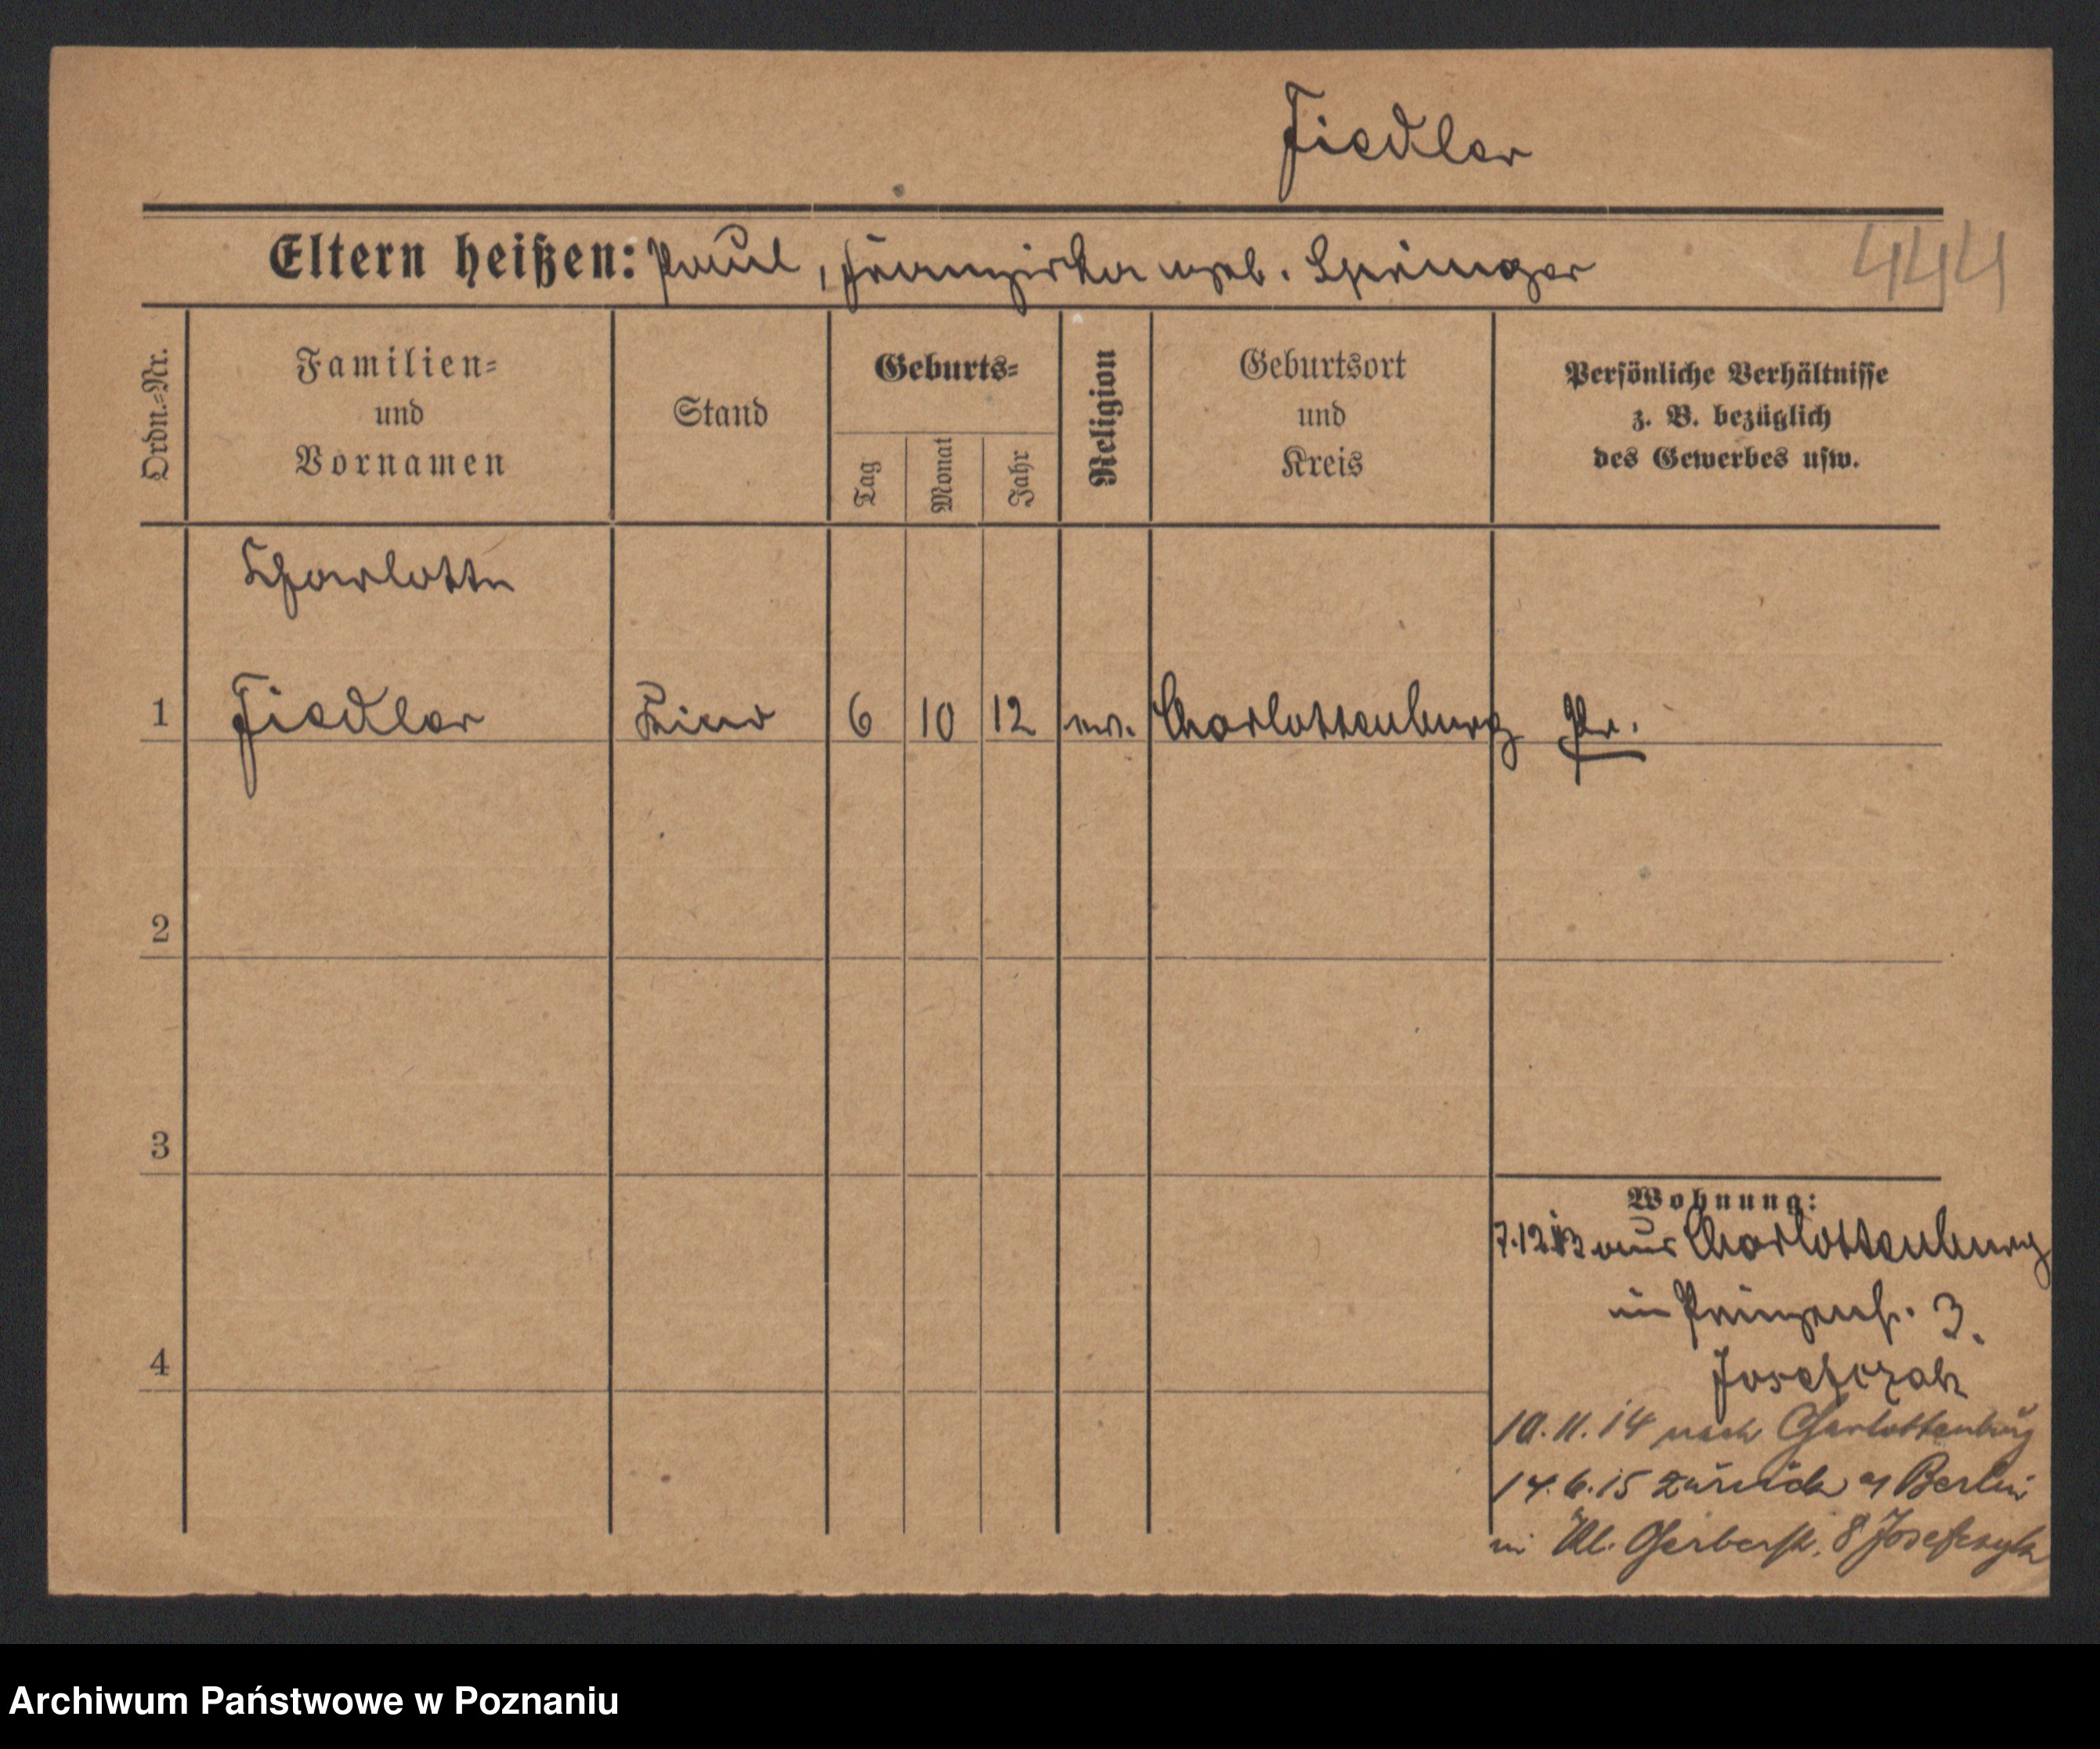 Fiedler
Eltern heißen: Paul, Franziska geb. Springer
444
Ordn.-Nr.
Familien-
und
Vornamen
Stand
Geburts-
Tag
Monat
Jahr
Religion
Geburtsort
und
Kreis
Persönliche Verhältnisse
z. B. bezüglich
des Gewerbes usw.
Charlotte
1 Fiedler Kind 6 10 12 ev. Charlottenburg Pr.
2
3
4
Wohnung:
7.12.13 aus Charlottenburg
in Prinzenst. 3.
Josefczak
10.11.14 nach Charlottenburg
14.6.15 zurück Berlin
in Kl. Gerberstr. 8 Josefczyk
Archiwum Państwowe w Poznaniu